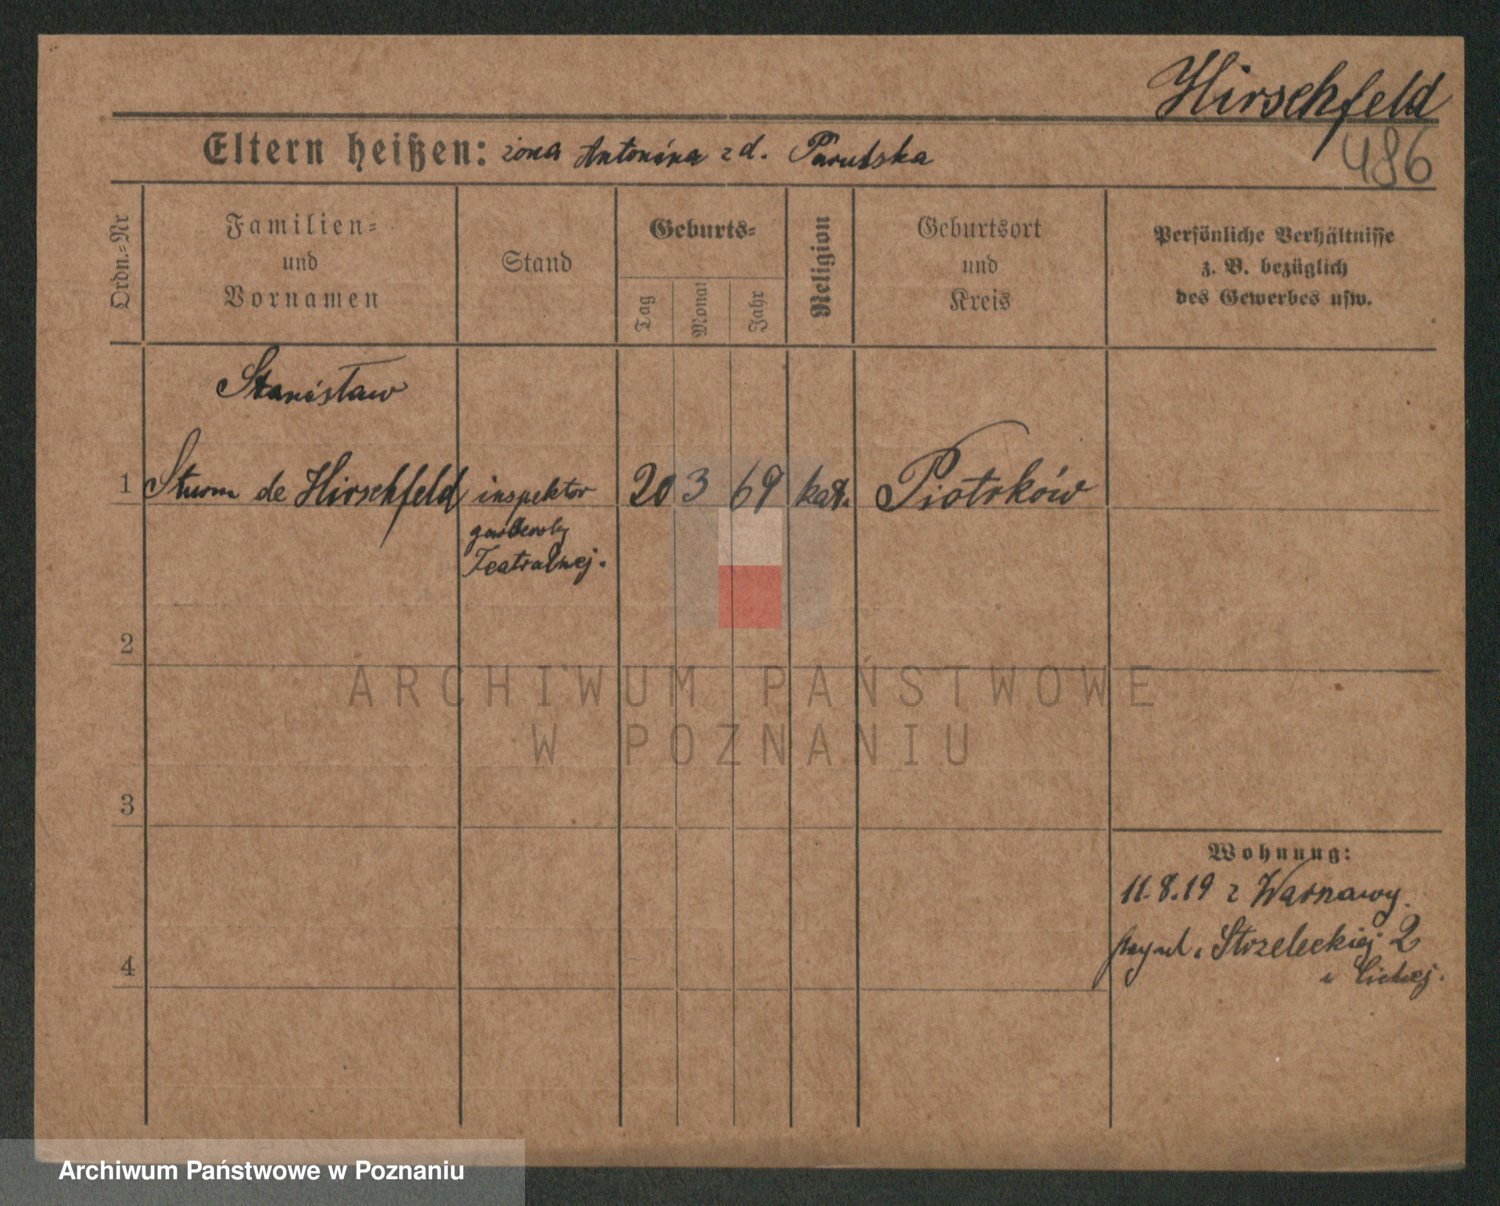 Hirschfeld
486
Eltern heißen: żona Antonina z d. Parulska
Ordn.-Nr
Familien-
und
Vornamen
Stand
Geburts-
Tag
Monat
Jahr
Religion
Geburtsort
und
Kreis
Persönliche Verhältnisse
z. B. bezüglich
des Gewerbes usw.
Stanisław
1 Sturm de Hirschfeld inspektor 20 3 69 kat. Piotrków
garderoby
Teatralnej.
2
ARCHIWUM PAŃSTWOWE
W POZNANIU
3
Wohnung:
11.8.19 z Warszawy.
Strzeleckiej 2
4
Archiwum Państwowe w Poznaniu